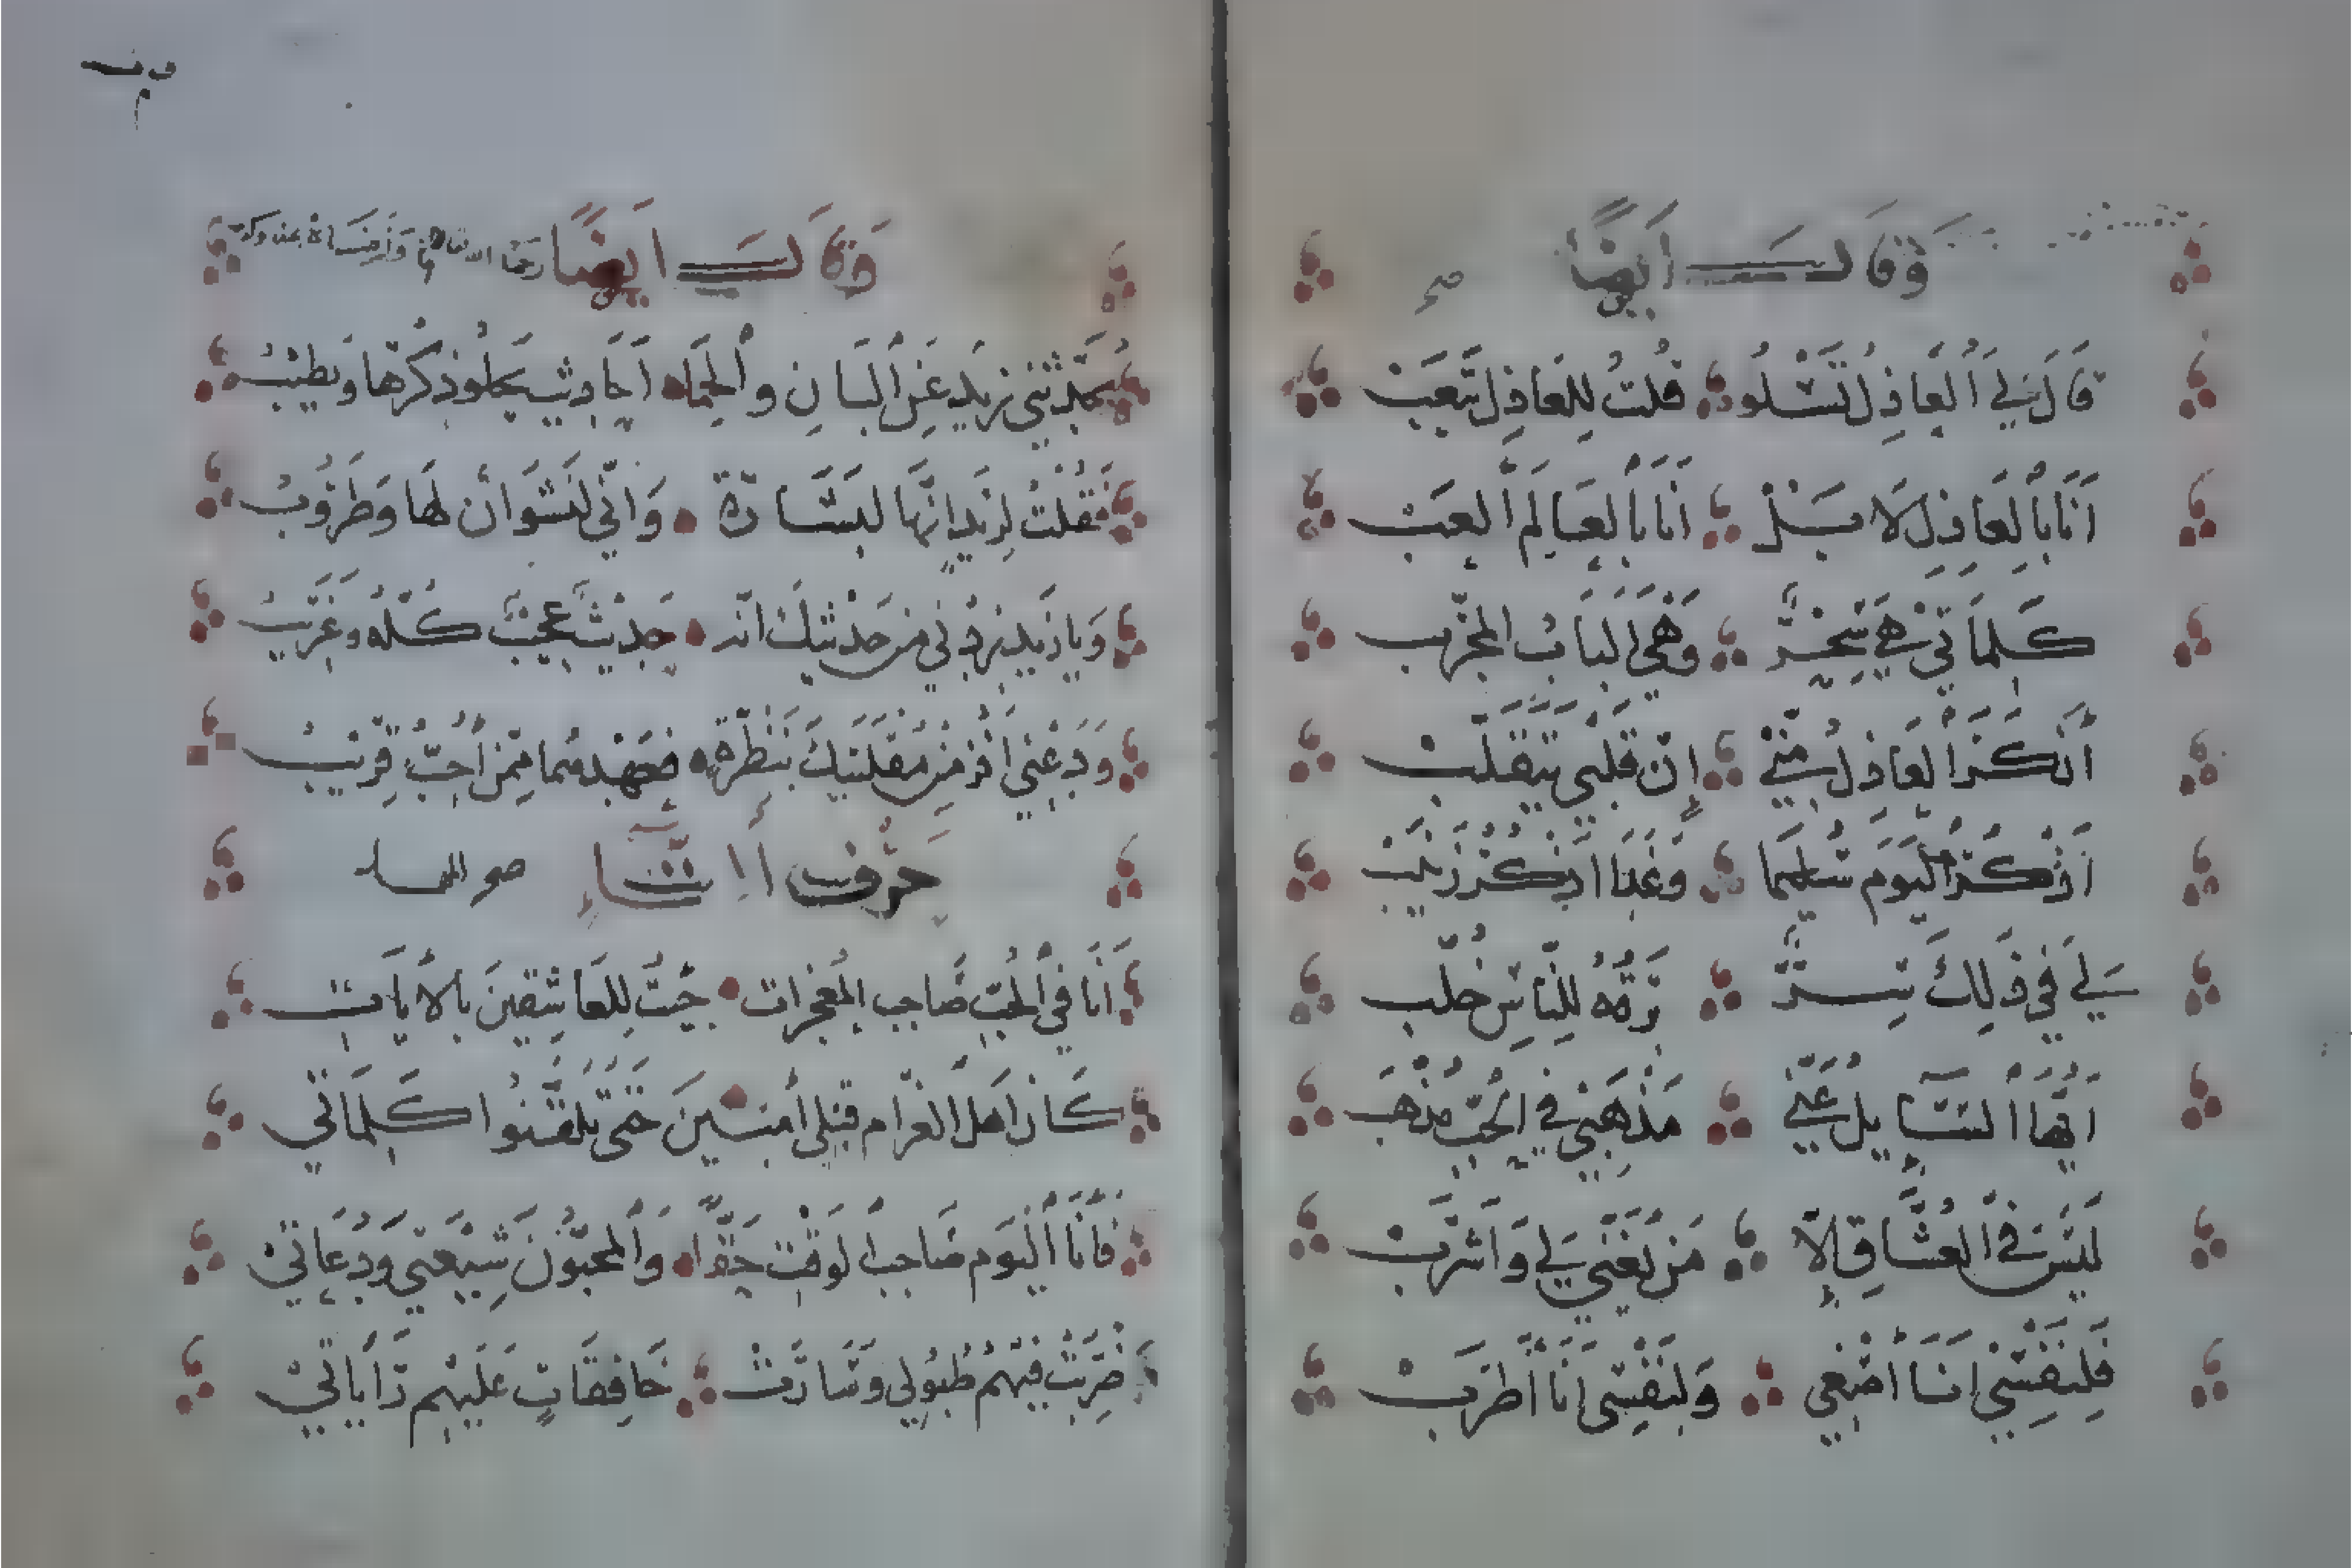 وَقَالَ اَيْضًا صح
قَالَ لِي اَلْعَاذِلُ تَسْلُو قُلتُ لِلعَاذِلِ تَتْعَبْ
اَنَا بِالعَاذِلِ لَا اَنَا بِالعَالَمِ اَلعَبْ
كَلِمَاتِي هِيَ سِحْرٌ وَهْيَ البَابُ المُجَرَّب
أَنْكَرَ العَاذِلُ مِنِّي إِنَّ قَلْبِي يَتَقَلَّبْ
اَذْكُرُ اليَوْمَ سُلَيْمَا وَغَدًا اَذْكُرُ زَيْنَبْ
لِي فِي ذَلِكَ سِرٌّ لِلنَّاسِ خُلَّب
اَيُّهَا السَّايِلُ عَنِّي مَذْهَبِي فِي الحُبِّ مُذْهَب
لَيْسَ فِي العُشَّاقِ إِلَّا مَنْ يُغَنِّي لِي وَاَشْرَبْ
فَلِنَفْسِي اَنَا وَلِنَفْسِي اَنَا اَطْرَبْ
وَقَالَ اَيْضًا
يُحَدِّثُنِي زَيْدٌ عَنِ اَلْبَانِ وَالْحِمَا اَحَادِيثَ يَحْلُو ذِكْرُهَا وَيَطِيْبُ
فَقُلْتُ لِزَيْدٍ اِنَّهَا لَبِشَارَةٌ وَاِنِّي لَنَشْوَانٌ لَهَا وَطَرُوْبُ
وَيَا زَيْدُ زِدْنِي مِنْ حَدِيْثِكَ اِنَّه حَدِيْثٌ عَجِيْبٌ كُلُّهُ وَغَرِيْبُ
وَدَعْنِي اَفُزْ مِنْ مُقْلَتَيْكَ بِنَظْرَةٍ فَعَهْدُهُمَا مِمَّنْ اُحِبُّ قَرِيْبُ
حَرْفُ اَلتَّاءِ صح
اَنَا فِي اَلْحُبِّ صَاحِبُ المُعْجِزَاتِ جِئْتُ لِلعَاشِقِيْنَ بِالاَيَاتِ
كَانَ اَهْلُ الغَرَامِ قَبْلِي اُمِّيّينَ حَتَّى تَلَقَّنُوا كَلِمَاتِي
فَاَنَا اَلْيَوْمَ صَاحِبُ الوَقْتِ حَقًّا وَالمُحِبُّوْنَ شِيْعَتِي وَدُعَاتِيْ
ضُرِبَتْ فِيْهِمُ طُبُوْلِي وَسَارَتْ خَافِقَاتٍ عَلَيْهِم رَايَاتِيْ